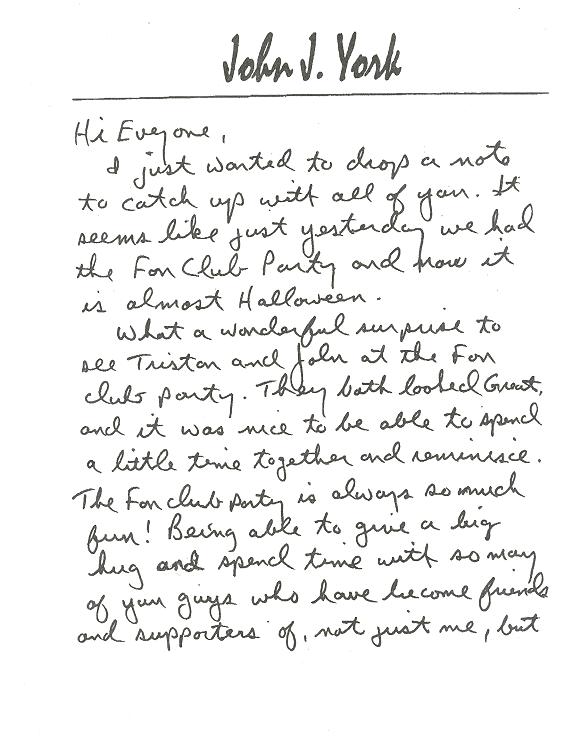 John J. York
Hi Eveyone,
I just wanted to drop a note
to catch up with all of you. It
seems like just yesterday we had
the Fan Club Party and now it
is almost Halloween.
What a wonderful surprise to
see Tristan and John at the Fan
club party. They both looked Great,
and it was nice to be able to spend
a little time together and reminisce.
The Fan club party is always so much
fun! Being able to give a big
hug and spend time with so many
of you guys who have become friends
and supporters of, not just me, but